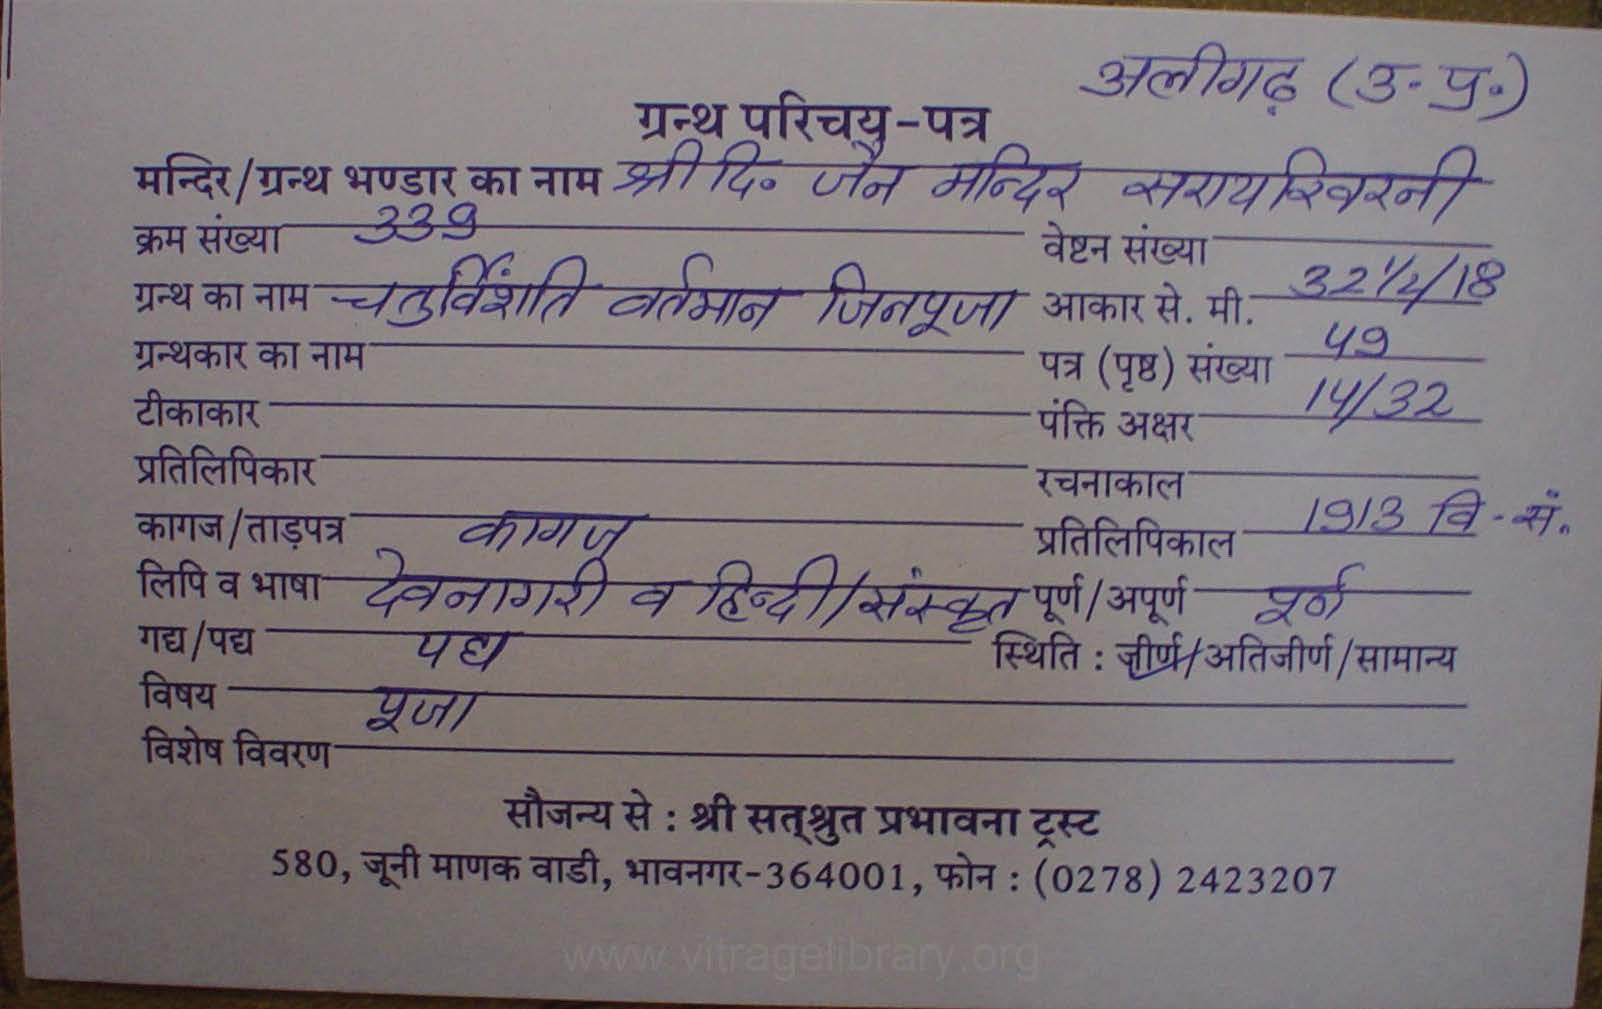 अलीगढ़ (उ.प्र.)
ग्रन्थ परिचय-पत्र
मन्दिर/ग्रन्थ भण्डार का नाम श्री दि. जैन मन्दिर सरायखिरनी
क्रम संख्या 339 वेष्टन संख्या
ग्रन्थ का नाम चतुर्विंशति वर्तमान जिनपूजा आकार से. मी. 32 1/2/18
ग्रन्थकार का नाम पत्र (पृष्ठ) संख्या 49
टीकाकार पंक्ति अक्षर 14/32
प्रतिलिपिकार रचनाकाल
कागज/ताड़पत्र कागज प्रतिलिपिकाल 1913 वि-सं.
लिपि व भाषा देवनागरी व हिन्दी/संस्कृत पूर्ण/अपूर्ण पूर्ण
गद्य/पद्य पद्य स्थिति : जीर्ण/अतिजीर्ण/सामान्य
विषय पूजा
विशेष विवरण
सौजन्य से : श्री सत्श्रुत प्रभावना ट्रस्ट
580, जूनी माणक वाडी, भावनगर-364001, फोन : (0278) 2423207
www.vitragelibrary.org